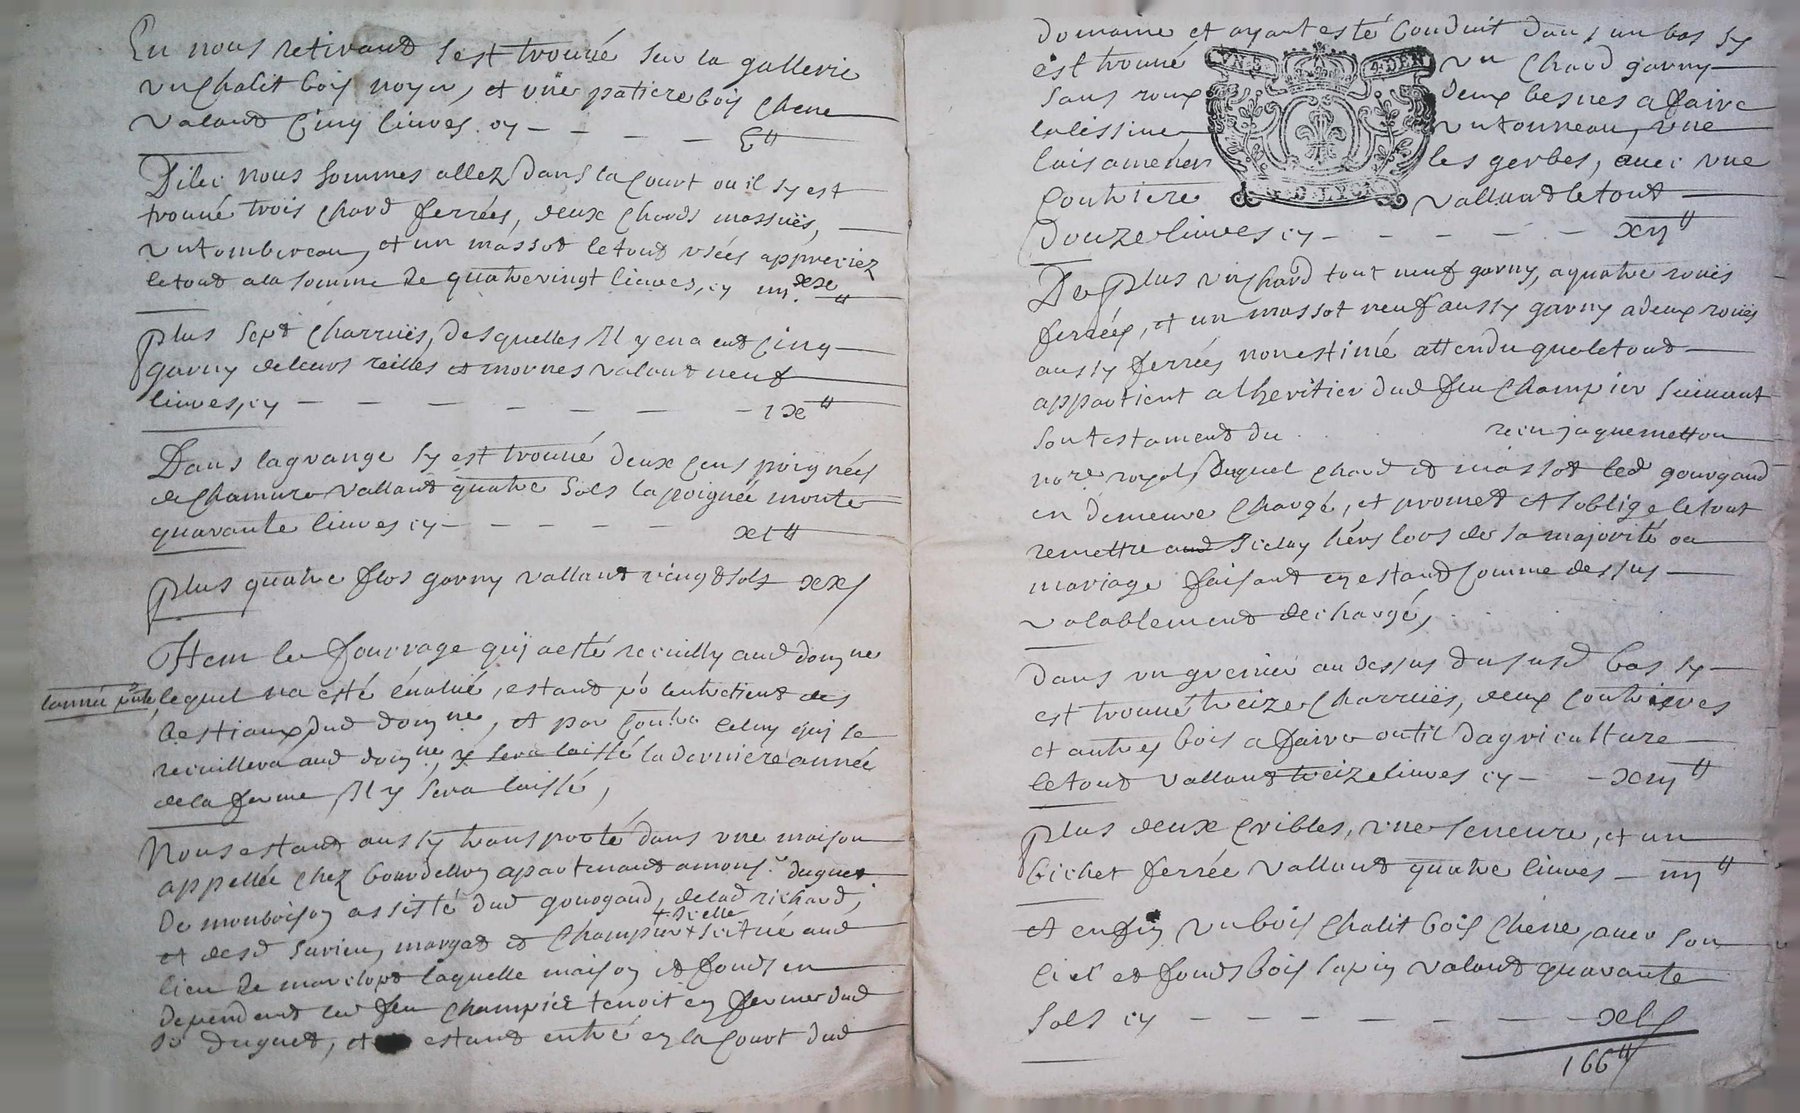 En nous retirant s'est trouvé sur la gallerie
un chalit bois noyer, et une patiere bois chene
valant cinq livres cy - - - 5tt
Dilec nous sommes allez dans la court ou il sy est
trouvé trois chard ferrées, deux chards massues,
un tombereau, et un massot le tout usées appreciez
le tout a la somme de quatre vingt livres, cy iiijxx tt
Plus sept charrues, desquelles Il y en a eut cinq
garny de leurs reilles et mornes valant neuf
livres, cy - - - - - - - ixtt
Dans la grange sy est trouvé deux cens poignées
de chanure vallant quatre sols la poignée monte
quarante livres cy - - - - - xltt
plus quatre flos garny vallant vingt sols xxs
Item le fourrage qui a esté recuilly aud domne
lannée pnte, lequel na esté évalué, estant pr lentretient des
bestiaux dud domne, et par contre celuy qui se
recuillera aud domne, y sera laissé la derniere année
de la ferme, Il y sera laissé,
Nous estant aussy transporté dans une maison
appellée chez bourdellon apartenant a monsr duguet
de monboison assisté dud gourgaud, delad richard,
et desd surieu, margat et champier + scitué aud
+ d'icelle
lieu de marclopt laquelle maison et fonds en
dependant led feu champier tenoit en ferme dud
sr duguet, et estant entré en la court dud
domaine et ayant esté conduit dans un bas sy
est trouvé un chard garny
sans roux deux besnes a faire
lalissine un tonneau, une
lais amener les gerbes, avec une
couhiere vallant le tout
douze livres cy - - - - - xijtt
VN S. 4. DEN
G. D. LYON
De plus un chard tout neuf garny, a quatre roues
ferrées, et un massot neuf aussy garny a deux roues
aussy ferrées non estimé attendu que le tout
appartient a lheritier dud feu champier suivant
son testament du receu jaquemetton
nore royal, duquel chard et massot led gourgaud
en demeure chargé, et promet et soblige le tout
remettre aud d'icluy hers lors de sa majorité ou
mariage faisant en estant comme dessus
valablement dechargé,
Dans un grenier au dessus du susd bas sy
est trouvé treize charrues, deux couhieres
et autres bois a faire outil dagriculture
le tout vallant treize livres cy - - xiijtt
Plus deux cribles, une seneure, et un
bichet ferrée vallant quatre livres - iiijtt
et enfin un bois chalit bois chene, avec son
ciel et fonds bois sapin valant quarante
sols cy - - - - - - - xls
166tt